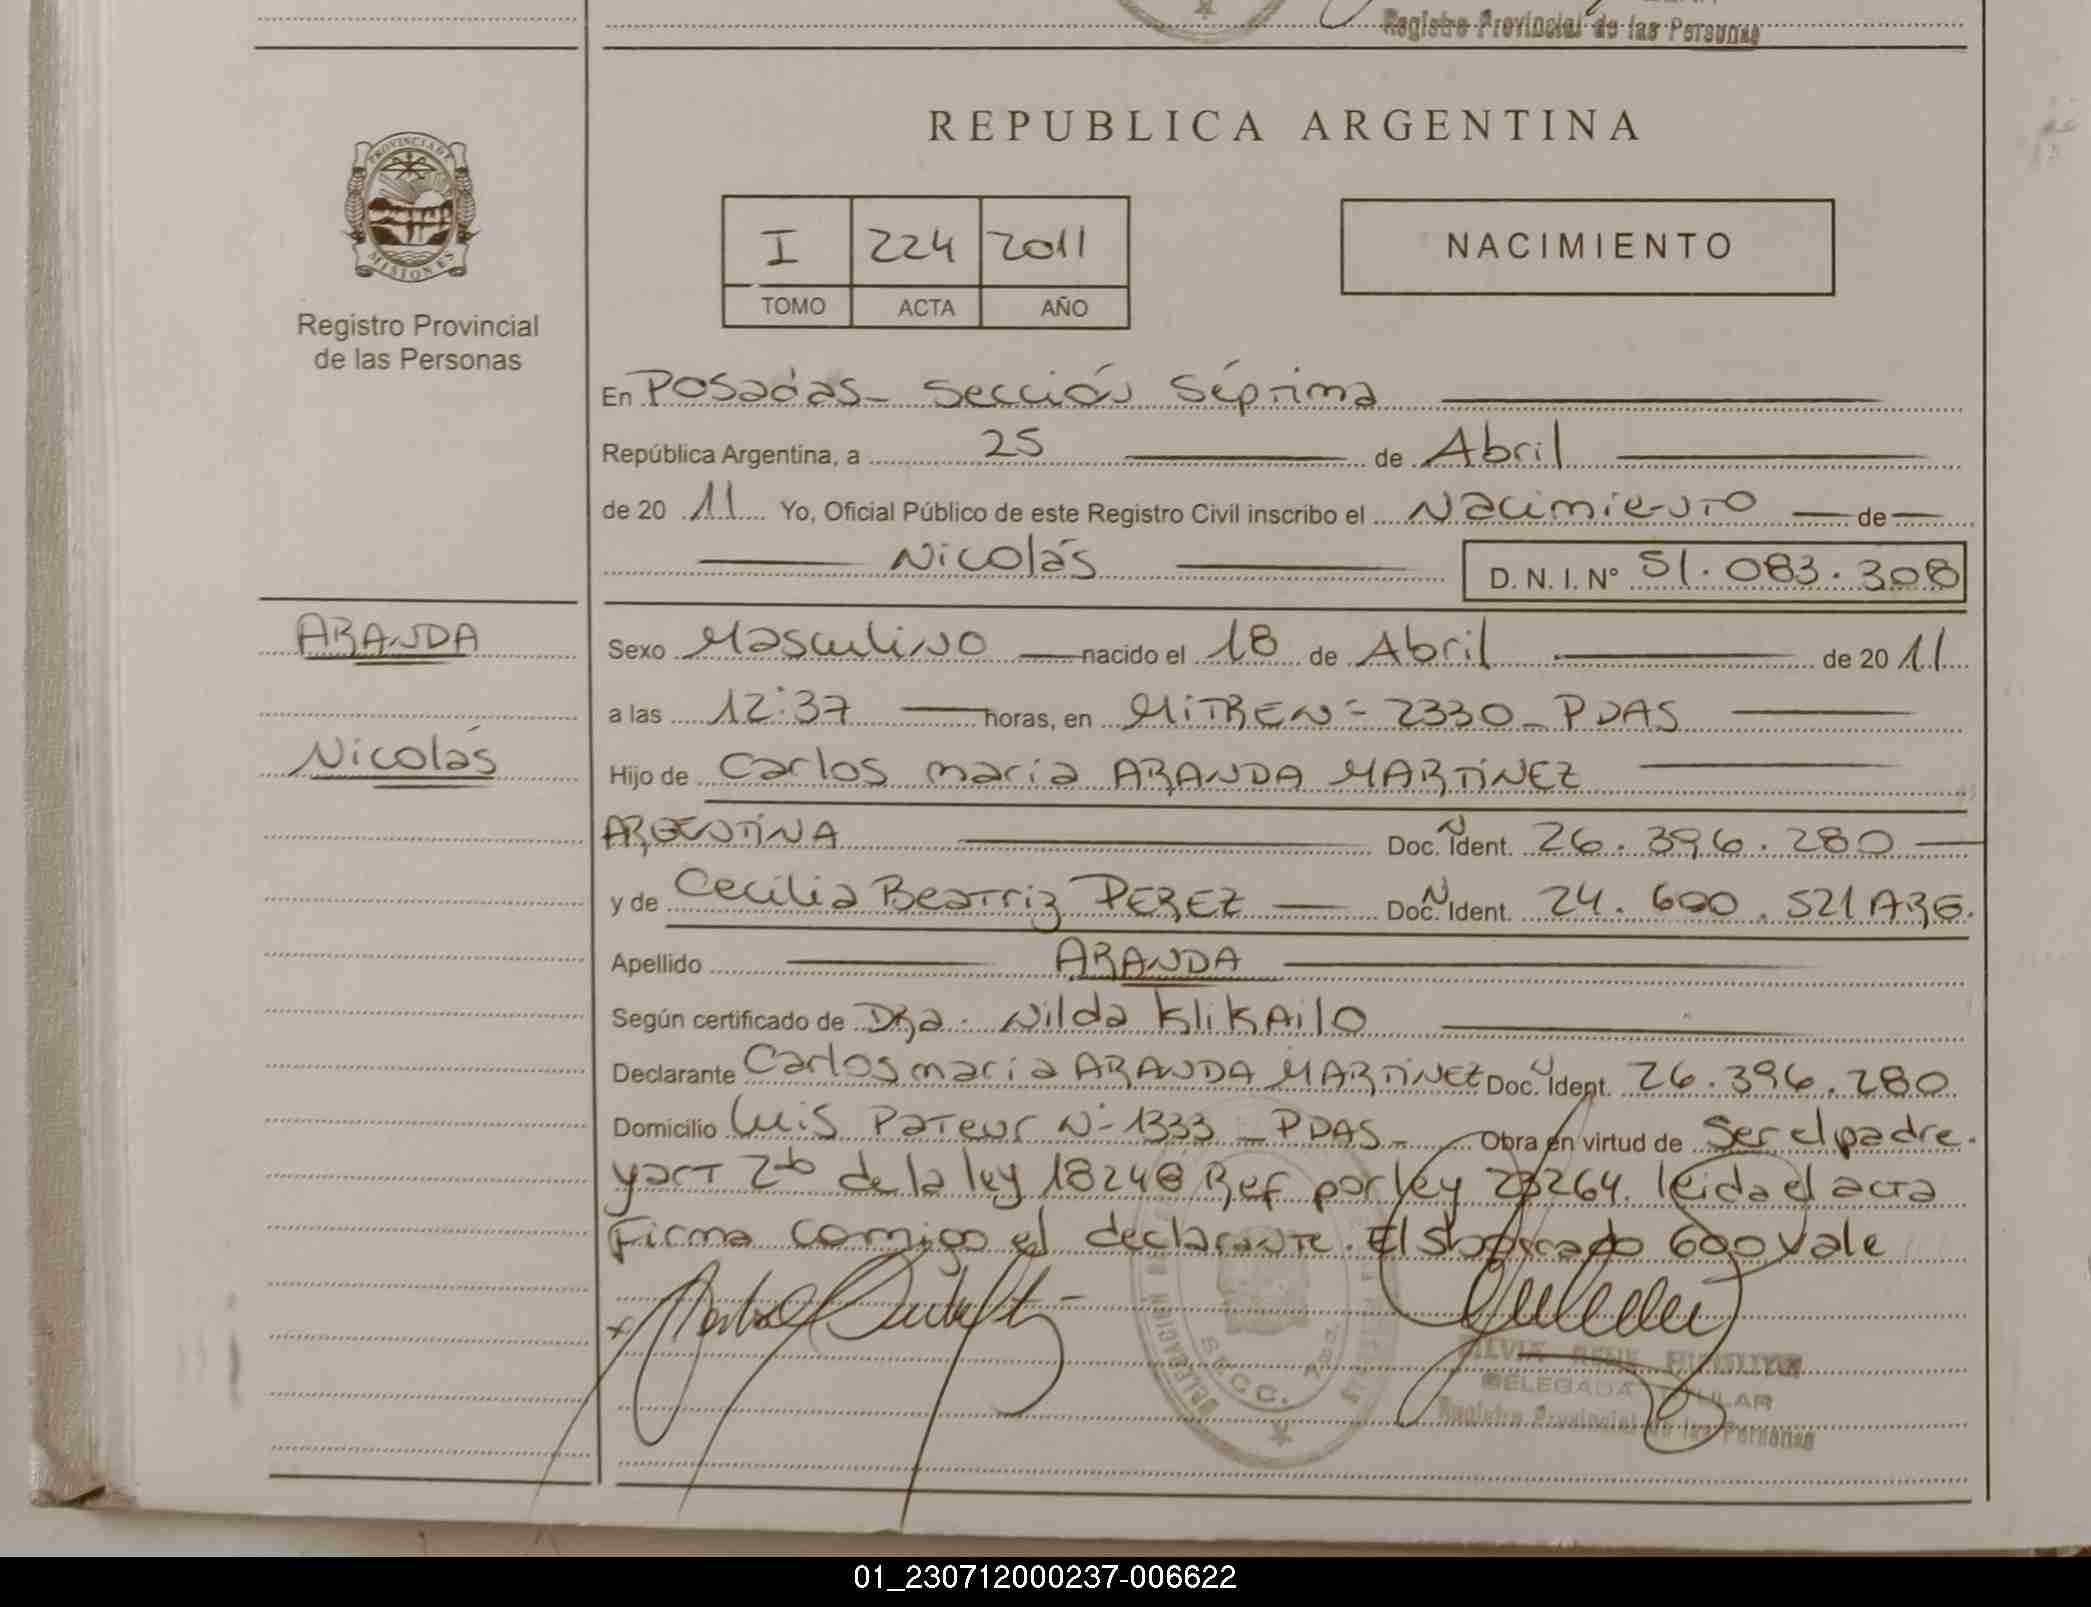 Registro Provincial de las Personas
PROVINCIA DE
MISIONES
Registro Provincial
de las Personas
REPUBLICA ARGENTINA
I 224 2011
TOMO ACTA AÑO
NACIMIENTO
En Posadas - Sección Séptima
República Argentina, a 25 de Abril
de 20 11 Yo, Oficial Público de este Registro Civil inscribo el Nacimiento de
Nicolás D. N. I. Nº 51.083.308
ARANDA
Nicolás
Sexo Masculino nacido el 18 de Abril de 20 11
a las 12:37 horas, en MiTRE Nº 2330 - PDAS
Hijo de Carlos maría ARANDA MARTíNEZ
ARGENTINA Doc. N Ident. 26.396.280
y de Cecilia Beatriz PEREZ Doc. N Ident. 24.600.521 ARG.
Apellido ARANDA
Según certificado de DRa. Nilda KliKAilo
Declarante Carlos maría ARANDA MARTíNEZ Doc. N Ident. 26.396.280
Domicilio Luis Pateur Nº 1333 - PDAS - Obra en virtud de Ser el padre.
y art 2b de la ley 18248 Ref por ley 23264. leida el acta
Firma comigo el declarante. El 600 Vale
DELEGACION
SECC.
DELEGADA TITULAR
Registro Provincial de las Personas
01_230712000237-006622